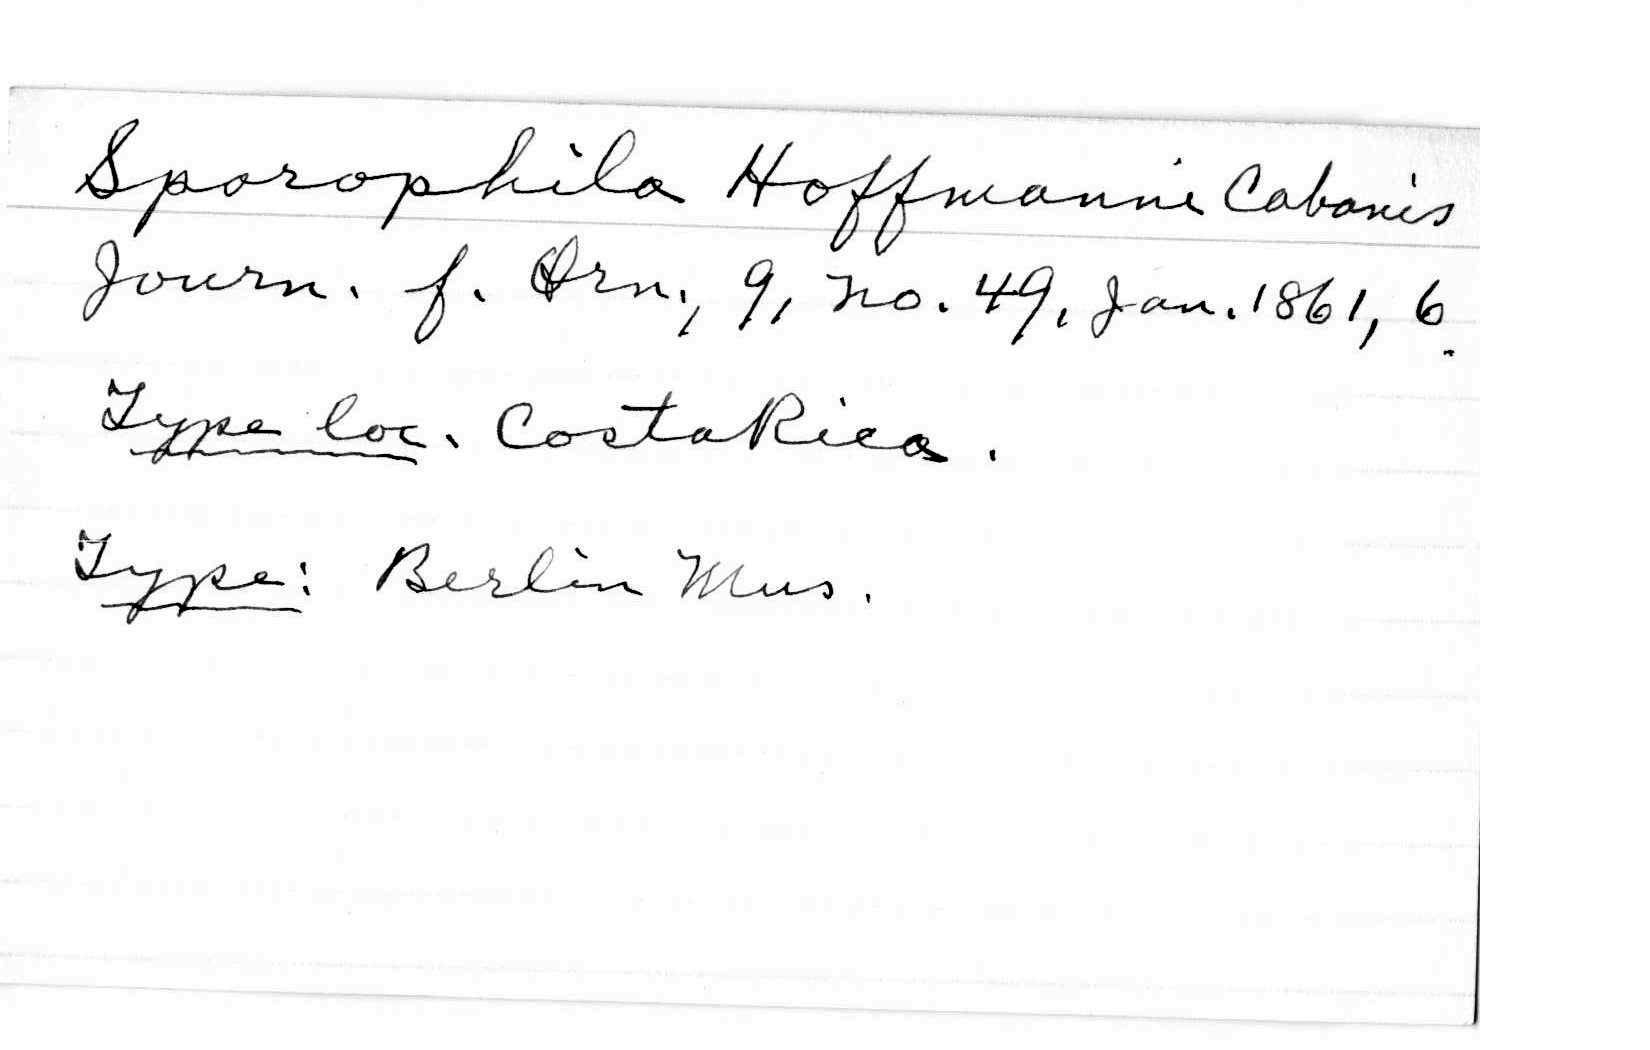 Sporophila Hoffmanni Cabanis
Journ. f. Orn., 9, no. 49, Jan. 1861, 6.
Type loc. Costa Rica.
Type: Berlin Mus.